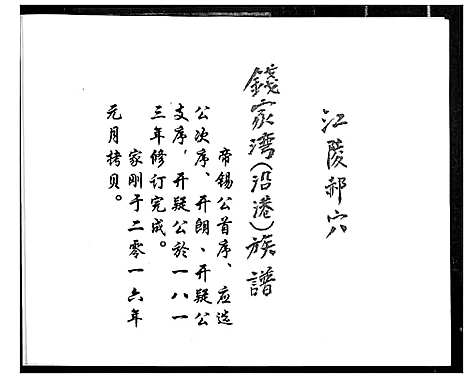 江陵郝穴
錢家湾(沿港)族譜
帝锡公首序、应选
公次序、开朗、开疑公
支序,开疑公於一八一
三年修订完成。
家刚于二零一六年
元月拷贝。